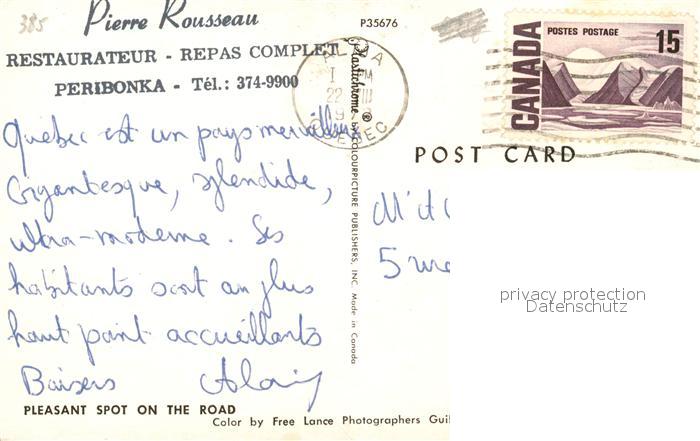 385
Pierre Rousseau
RESTAURATEUR - REPAS COMPLET
PERIBONKA - Tél.: 374-9900
P35676
ALMA
QUEBEC
CANADA
POSTES POSTAGE
15
POST CARD
Québec est un pays merveilleux
Gigantesque, splendide,
ultra-moderne. Ses
habitants sont au plus
haut point accueillants
Baisers Alain
Plastichrome ® by COLOURPICTURE PUBLISHERS, INC. Made in Canada
M et
5
privacy protection
Datenschutz
PLEASANT SPOT ON THE ROAD
Color by Free Lance Photographers Guil